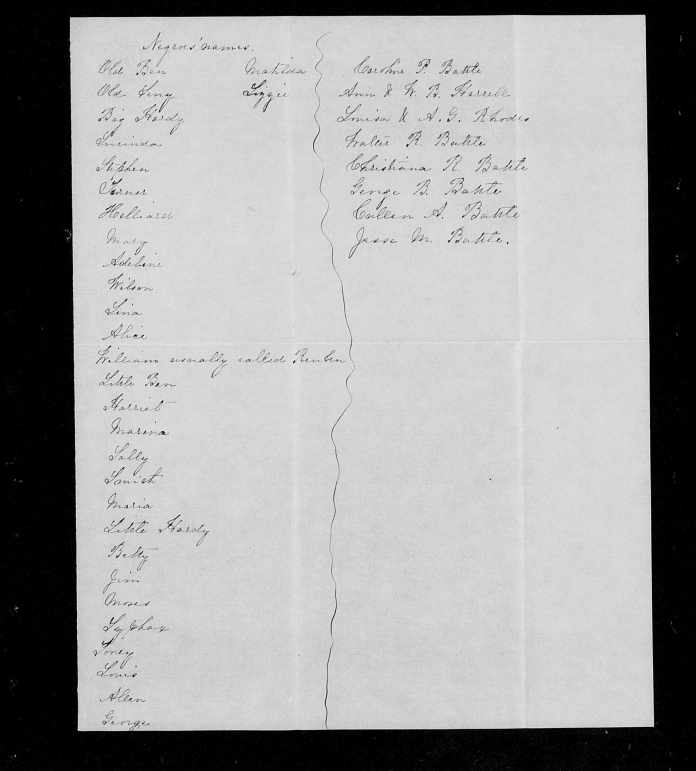 Negroes' names.
Old Ben
Old
Big Hardy
Lucinda
Stephen
Turner
Helliard
Mary
Adeline
Wilson
Lina
Alice
William usually called Reuben
Little Ben
Harriet
Marina
Sally
Maria
Little Hardy
Betty
Jim
Moses
Syphax
Toney
Louis
Allen
George
Matilda
Lizzie
Caroline P. Battle
Ann & W. B. Harrell
Louisa & A. G. Rhodes
Walter R. Battle
Christiana R. Battle
George B. Battle
Cullen A. Battle
Jesse M. Battle.